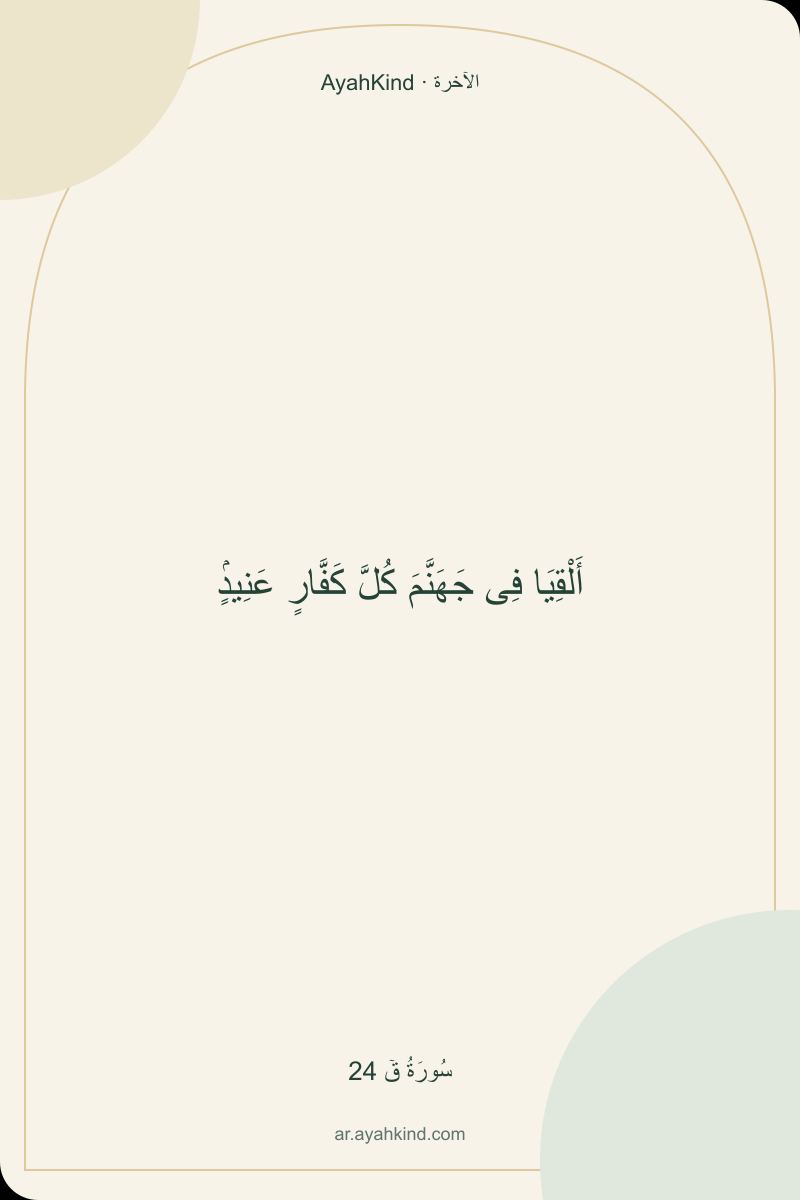 AyahKind · الآخرة
أَلْقِيَا فِى جَهَنَّمَ كُلَّ كَفَّارٍ عَنِيدٍۢ
سُورَةُ قٓ 24
ar.ayahkind.com